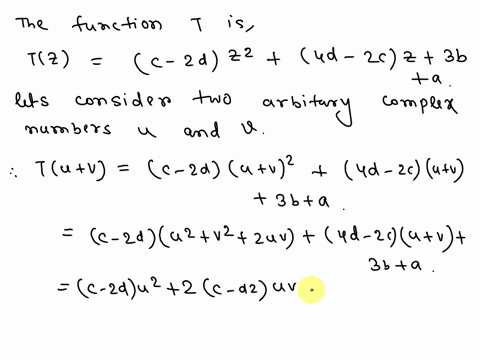 The function T is,
T(z) = (c-2d) z2 + (4d-2c) z + 3b
+a.
lets consider two arbitary complex
numbers u and v.
∴ T(u+v) = (c-2d) (u+v)² + (4d-2c)(u+v)
+ 3b+a.
= (c-2d)(u²+v²+2uv) + (4d-2c)(u+v)+
3b+a.
= (c-2d)u²+2(c-d2) uv